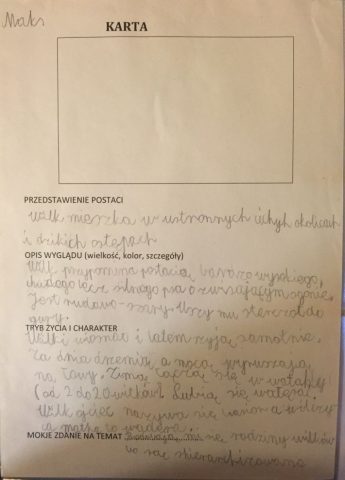 Maks
KARTA
PRZEDSTAWIENIE POSTACI
Wilk mieszka w ustronnych cichych okolicach
i dzikich ostępach
OPIS WYGLĄDU (wielkość, kolor, szczegóły)
Wilk przypomina postacią bardzo wysokiego,
chudego lecz silnego psa o zwisającym ogonie.
Jest rudawo-szary. Uszy mu sterczą do
góry.
TRYB ŻYCIA I CHARAKTER
Wilki wiosną i latem żyją samotnie.
Za dnia drzemią a nocą wyruszają
na łowy. Zimą łączą się w watahy
(od 2 do 20 wilków). Lubią się
Wilk ojciec nazywa się a
a matka to wadera.
MOKJE ZDANIE NA TEMAT się rodziny wilków
bo są zhierarchizowane